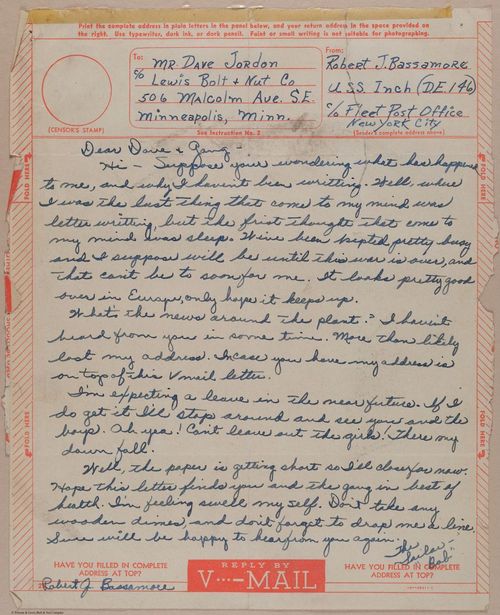 Print the complete address in plain letters in the panel below, and your return address in the space provided on
the right. Use typewriter, dark ink, or dark pencil. Faint or small writing is not suitable for photographing.
To:
MR. Dave Jordon
c/o Lewis Bolt & Nut Co
506 Malcolm Ave. S.E.
Minneapolis, Minn.
From:
Robert J. Bassamore
U.S.S. Inch (DE.146)
c/o Fleet Post Office
New York City
(CENSOR'S STAMP)
See Instruction No. 2
(Sender's complete address above)
FOLD HERE
FOLD HERE
Dear Dave & Gang -
Hi - Suppose your wondering what has happene
to me, and why I havent been writting. Well, where
I was the last thing that come to my mind was
letter writting, but the first thought that come to
my mind was sleep. We've been kepted pretty busy
and I suppose will be until this war is over, and
that can't be to soon for me. It looks pretty good
over in Europe, only hope it keeps up.
What's the news around the plant? I havent
heard from you in some time. More than likely
lost my address. Incase you have my address is
on top of this V mail letter.
I'm expecting a leave in the near future. If I
do get it I'll stop around and see you and the
boys. Ah yea! Cant leave out the girls! There my
down fall.
Well, the paper is getting short so I'll close for now.
Hope this letter finds you and the gang in best of
health. I'm feeling swell my self. Don't take any
wooden dimes, and don't forget to drop me a line.
Sure will be happy to hear from you again.
The
Sailor
Bob"
FOLD HERE
FOLD HERE
HAVE YOU FILLED IN COMPLETE
ADDRESS AT TOP?
REPLY BY
V···—MAIL
HAVE YOU FILLED IN COMPLETE
ADDRESS AT TOP?
Robert J. Bassamore